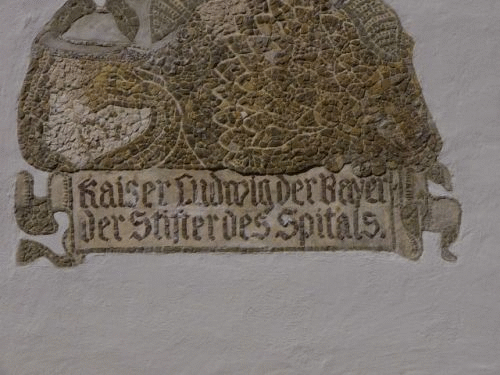 Kaiser Ludwig der Bayer
der Stifter des Spitals.